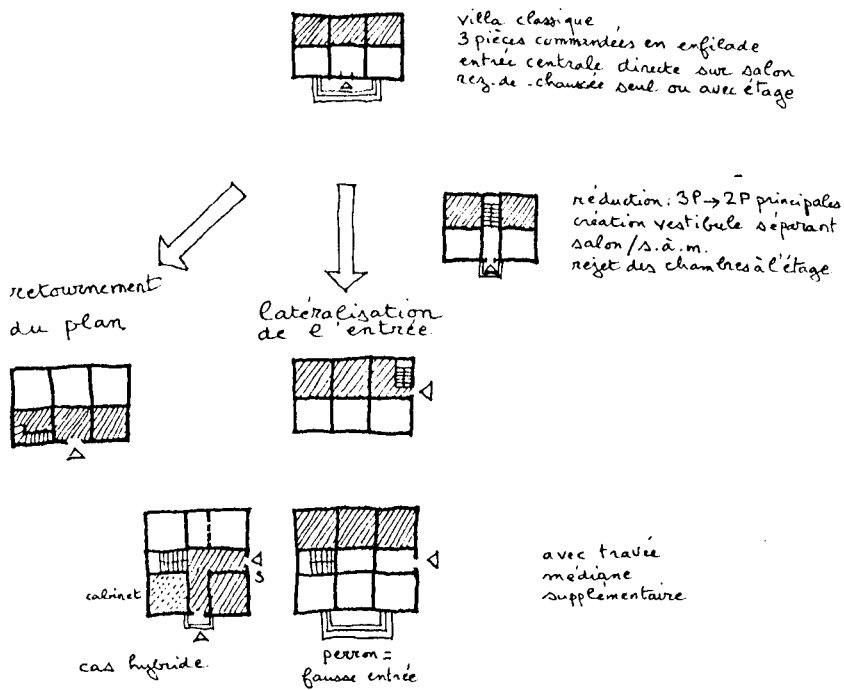 villa classique
3 pièces commandées en enfilade
entrée centrale directe sur salon
rez-de-chaussée seul ou avec étage
réduction: 3P→2P principales
création vestibule séparant
salon/s.à.m.
rejet des chambres à l'étage
retournement
du plan
latéralisation
de l'entrée
cabinet
S
cas hybride
perron =
fausse entrée
avec travée
médiane
supplémentaire